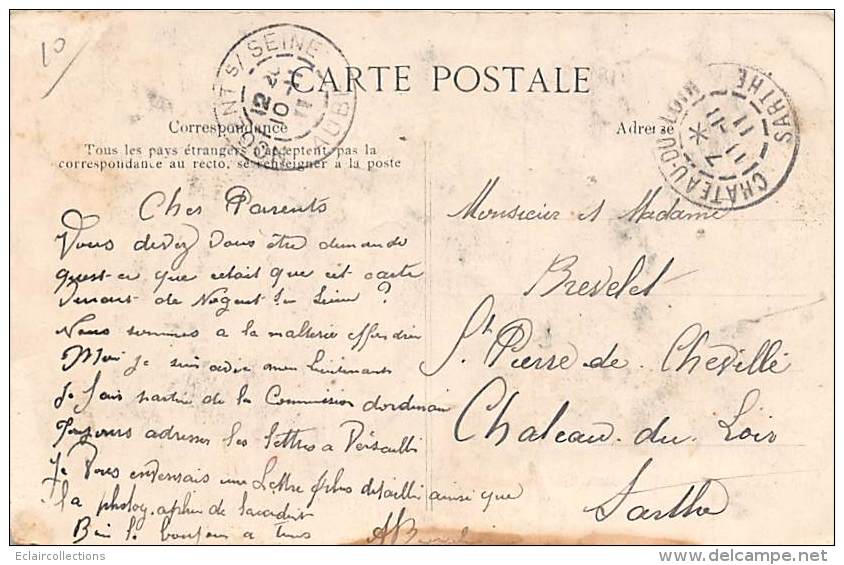 10
NT S/ SEINE
AUBE
12
10
11
CARTE POSTALE
CHATEAU-DU-LOIR
SARTHE
7 *
11 -11
11
Correspondance
Adresse
Tous les pays étrangers n'acceptent pas la
correspondance au recto, se renseigner à la poste
Cher Parents
Vous devez vous être demande
quest-ce que cetait que cet carte
venant de Nogent sur Seine ?
Nous sommes a la malterie
Moi je suis avec mon lieutenant
Je fais partie de la Commission dordinair
Toujours adresser les lettres a Versaille
Je Vous enverrais une Lettre plus detaillé ainsi que
la photographie de
Bien le bonjour a tous
Monsieur et Madame
Brevelet
St Pierre de Chevillé
Chateau du Loir
Sarthe
Eclaircollections
delcampe.net